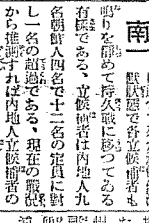 南
默狀態で各立候補者も
鳴りを靜めて持久戰に移つてゐる
有樣である、立候補者は內地人九
名朝鮮人四名で十二名の定員に對
し一名の超過である、現在の戰況
から推測すれば內地人立候補者の